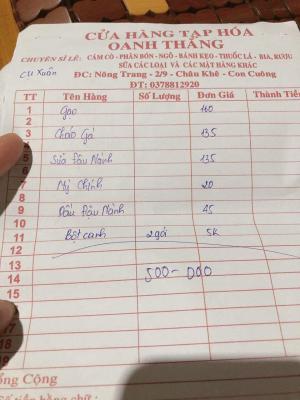 CỬA HÀNG TẠP HÓA
OANH THẮNG
CHUYÊN SỈ LẺ: CÁM CÒ - PHÂN BÓN - NGÔ - BÁNH KẸO - THUỐC LÁ - BIA, RƯỢU
SỮA CÁC LOẠI VÀ CÁC MẶT HÀNG KHÁC
CU Xuân
ĐC: Nông Trang - 2/9 - Châu Khê - Con Cuông
ĐT: 0378812920
TT Tên Hàng Số Lượng Đơn Giá Thành Tiền
1 Gạo 160
2
3 Cháo Gà 135
4
5 Sữa Đậu Nành 135
6
7 Mỳ Chính 20
8
9 Dầu Đậu Nành 45
10
11 Bột canh 2 gói 5K
12
13
14 500-000
15
ổng Cộng
Số tiền bằng chữ: